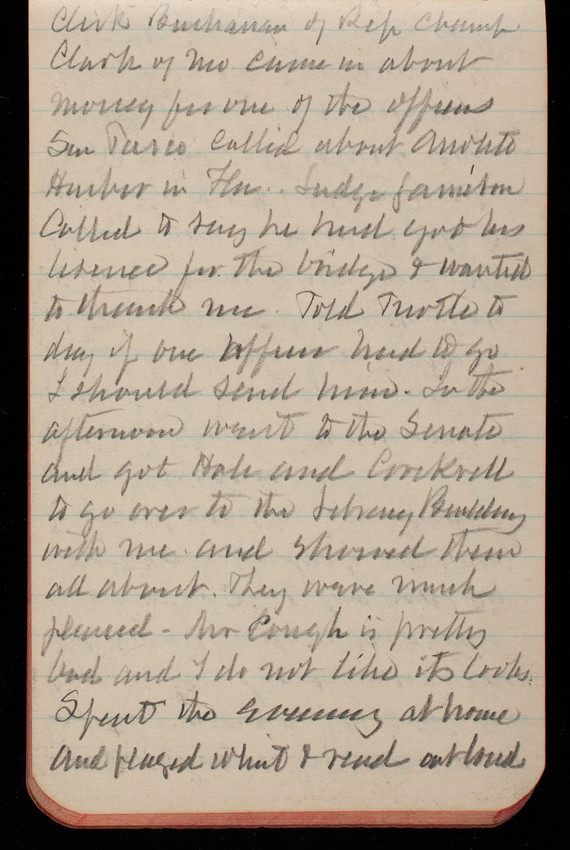 Clerk Buchanan of Rep Champ
Clark of Mo came in about
money for one of the officers
Sen Pasco called about
Harbor in Fla.. Judge
Called to say he had got his
lisence for the bridge & wanted
to thank me. Told to
day if one officer had to go
I should send him. In the
afternoon went to the Senate
and got Hale and Cockrell
to go over to the Library Building
with me and showed them
all about. They were much
pleased - Cough is pretty
bad and I do not like its looks.
Spent the evening at home
and played whist & read out loud